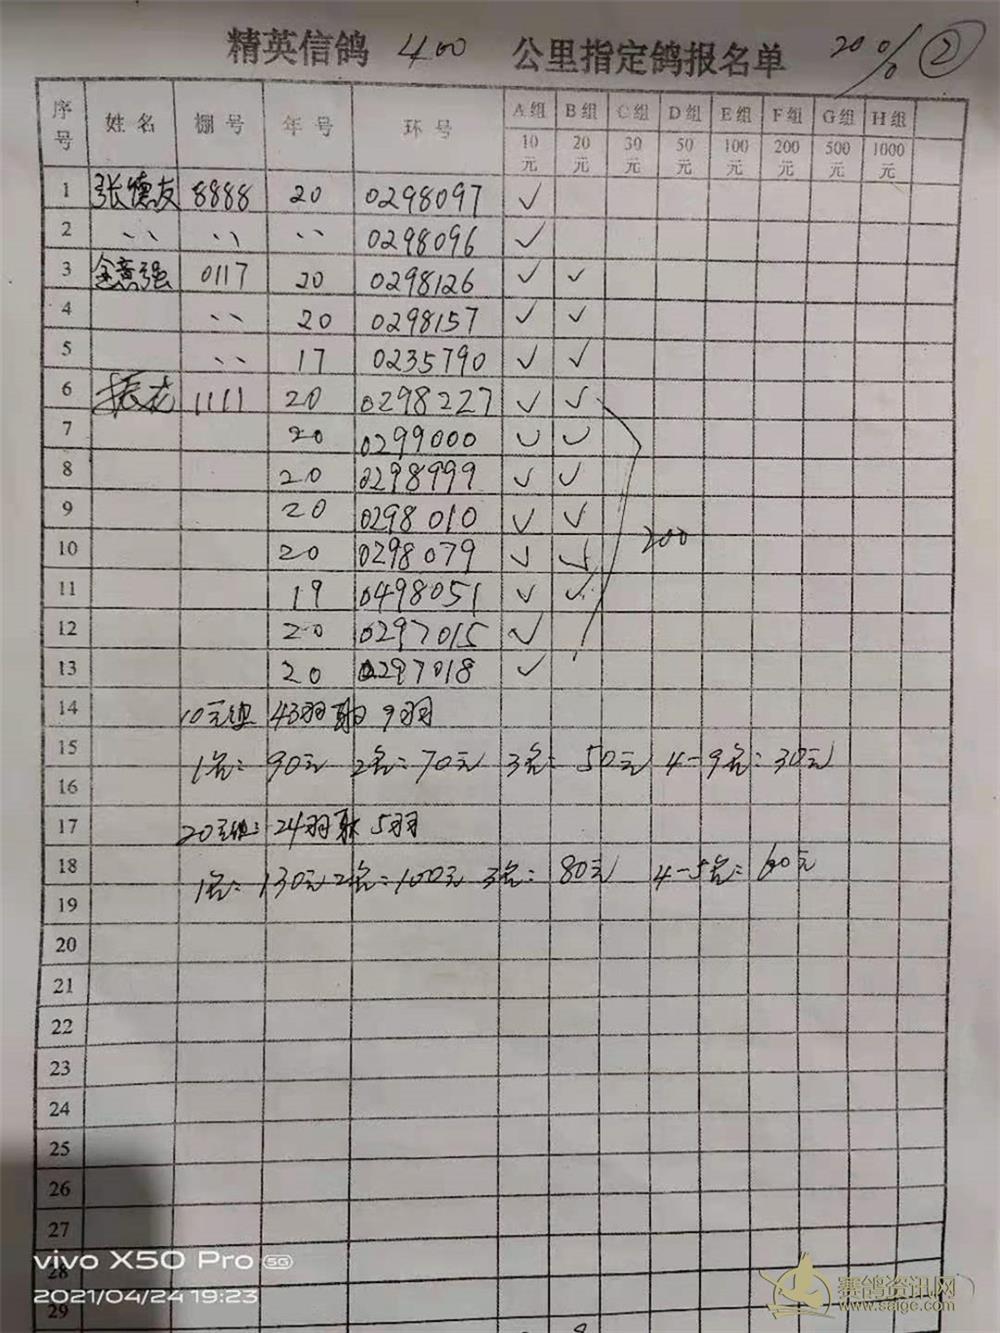 精英信鸽 400 公里指定鸽报名单 20% ②
序号 姓名 棚号 年号 环号 A组 B组 C组 D组 E组 F组 G组 H组
10元 20元 30元 50元 100元 200元 500元 1000元
1 张德友 8888 20 0298097 ✓
2 〃 〃 〃 0298096 ✓
3 金意强 0117 20 0298126 ✓ ✓
4 〃 20 0298157 ✓ ✓
5 〃 17 0235790 ✓ ✓
6 振龙 1111 20 0298227 ✓ ✓
7 20 0299000 ✓ ✓
8 20 0298999 ✓ ✓
9 20 0298010 ✓ ✓
10 20 0298079 ✓ ✓ 200
11 19 0498051 ✓ ✓
12 20 0297015 ✓
13 20 0297018 ✓
14 10元组 43羽取 9羽
15 1名:90元 2名:70元 3名:50元 4-9名:30元
16
17 20元组:24羽取 5羽
18 1名:130元 2名:100元 3名:80元 4-5名:60元
19
20
21
22
23
24
25
26
27
28
29
vivo X50 Pro 5G
2021/04/24 19:23
赛鸽资讯网
www.saige.com